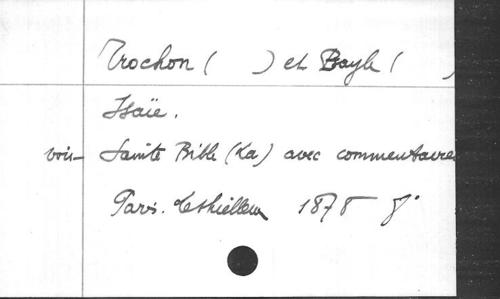 Trochon ( ) et Bayle ( )
Isaïe.
voir Sainte Bible (La) avec commentaires
Paris. Lethielleux 1878 8°